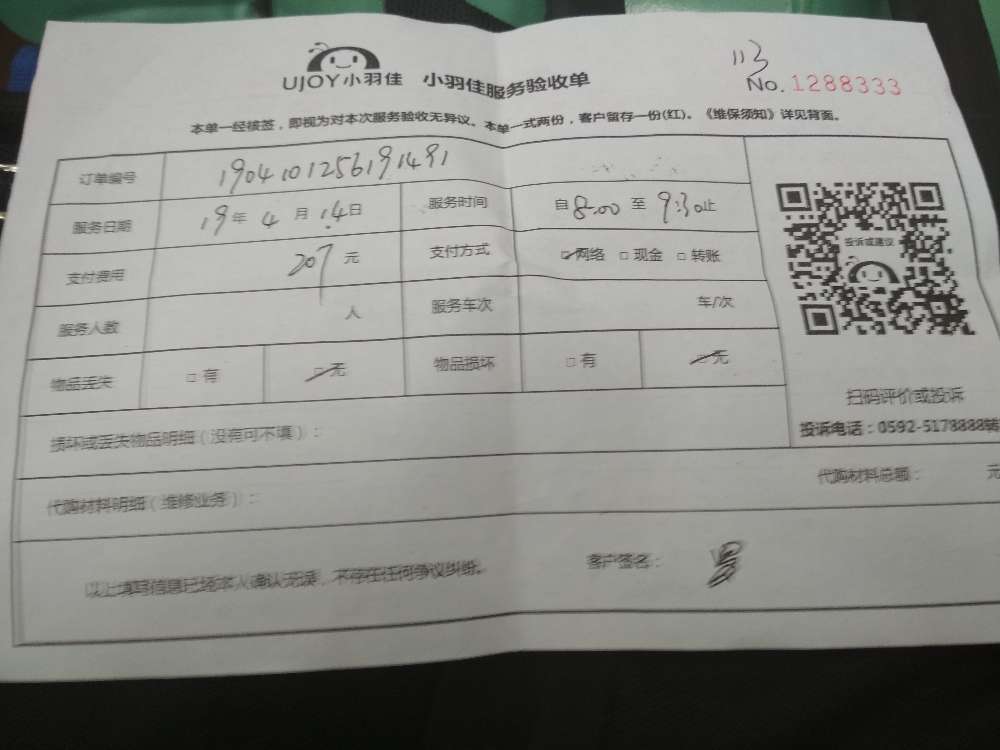 113
UJOY小羽佳 小羽佳服务验收单 No.1288333
本单一经核签，即视为对本次服务验收无异议。本单一式两份，客户留存一份(红)。《维保须知》详见背面。
订单编号 1904101256191491
服务日期 19年 4月 14日 服务时间 自8:00 至 9:30止
支付费用 207元 支付方式 ☑网络 □现金 □转账
服务人数 人 服务车次 车/次
物品丢失 □有 ☑无 物品损坏 □有 ☑无
投诉或建议
扫码评价或投诉
投诉电话：0592-5178888转
损坏或丢失物品明细（没有可不填）：
代购材料明细（维修业务）： 代购材料总额： 元
以上填写信息已经本人确认无误，不存在任何争议纠纷。 客户签名：